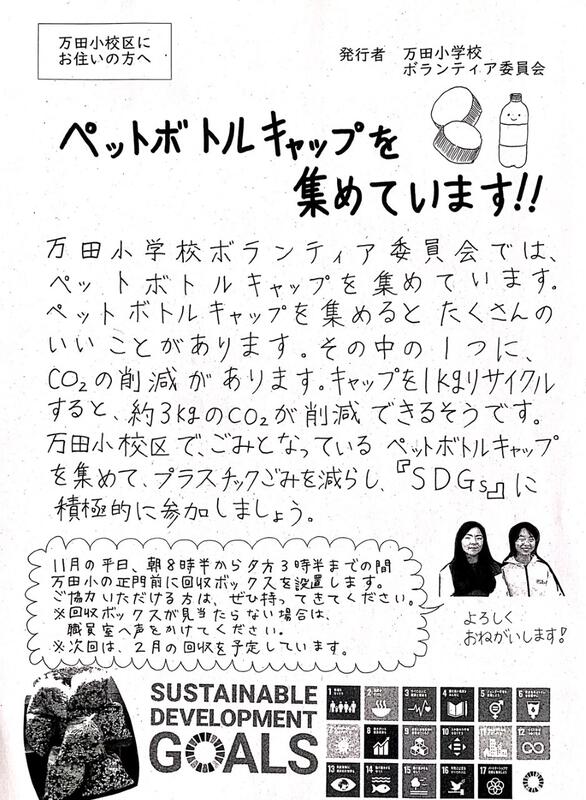 万田小校区に
お住いの方へ
発行者 万田小学校
ボランティア委員会
ペットボトルキャップを
集めています!!
万田小学校ボランティア委員会では、
ペットボトルキャップを集めています。
ペットボトルキャップを集めると たくさんの
いいことがあります。その中の1つに、
CO₂の削減があります。キャップを1kgリサイクル
すると、約3kgのCO₂が削減できるそうです。
万田小校区で、ごみとなっているペットボトルキャップ
を集めて、プラスチックごみを減らし、『SDGs』に
積極的に参加しましょう。
11月の平日、朝8時半から夕方3時半までの間
万田小の正門前に回収ボックスを設置します。
ご協力いただける方は、ぜひ持ってきてください。
※回収ボックスが見当たらない場合は、
職員室へ声をかけてください。
※次回は、2月の回収を予定しています。
よろしく
おねがいします!
SUSTAINABLE
DEVELOPMENT
GOALS
1 2 3 4 5 6
7 8 9 10 11 12
13 14 15 16 17